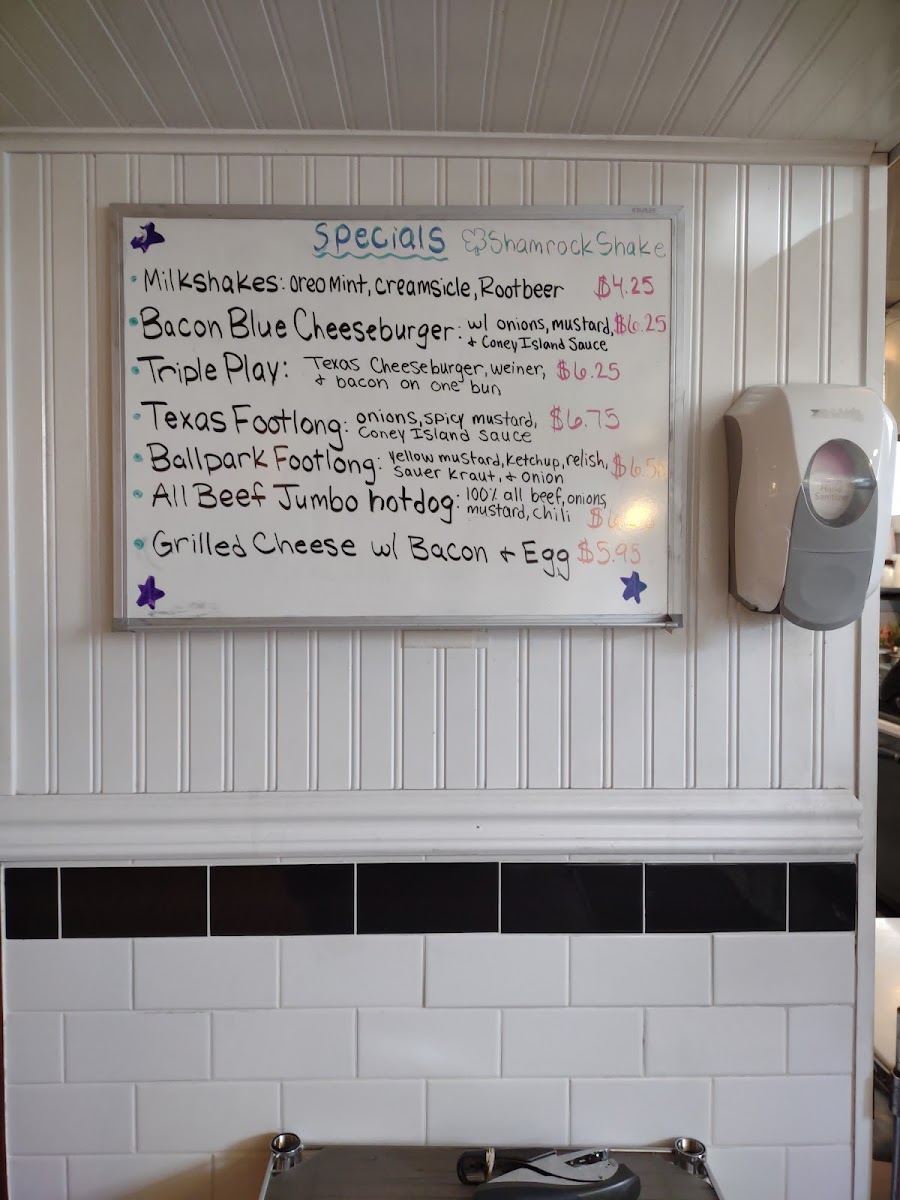 Specials Shamrock Shake
Milkshakes: Oreo Mint, Creamsicle, Rootbeer $4.25
Bacon Blue Cheeseburger: w/ onions, mustard, $6.25
+ Coney Island Sauce
Triple Play: Texas Cheeseburger, weiner, $6.25
+ bacon on one bun
Texas Footlong: onions, spicy mustard, $6.75
Coney Island Sauce
Ballpark Footlong: yellow mustard, ketchup, relish,
Sauer Kraut, + onion
All Beef Jumbo hotdog: 100% all beef, onions,
mustard, chili
Grilled Cheese w/ Bacon + Egg $5.95
Hand
Sanitizer